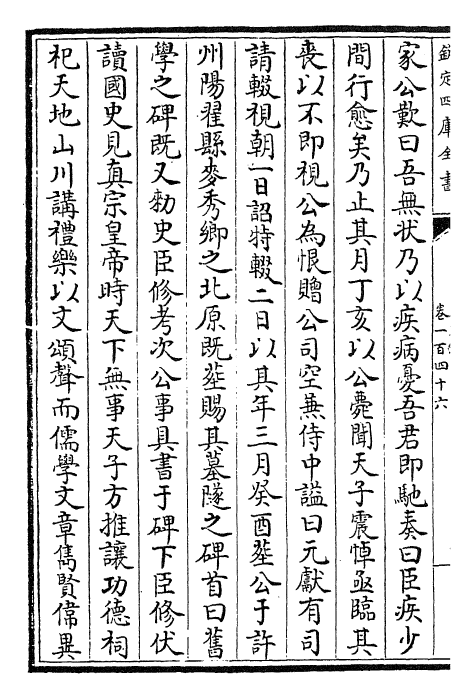 欽定四庫全書
卷一百四十六
家公歎曰吾無狀乃以疾病憂吾君即馳奏曰臣疾少
間行愈矣乃止其月丁亥以公薨聞天子震悼亟臨其
喪以不即視公為恨贈公司空兼侍中諡曰元獻有司
請輟視朝一日詔特輟二日以其年三月癸酉塟公于許
州陽翟縣麥秀鄉之北原既塟賜其墓隧之碑首曰舊
學之碑既又勑史臣修考次公事具書于碑下臣修伏
讀國史見真宗皇帝時天下無事天子方推讓功德祠
祀天地山川講禮樂以文頌聲而儒學文章雋賢偉異